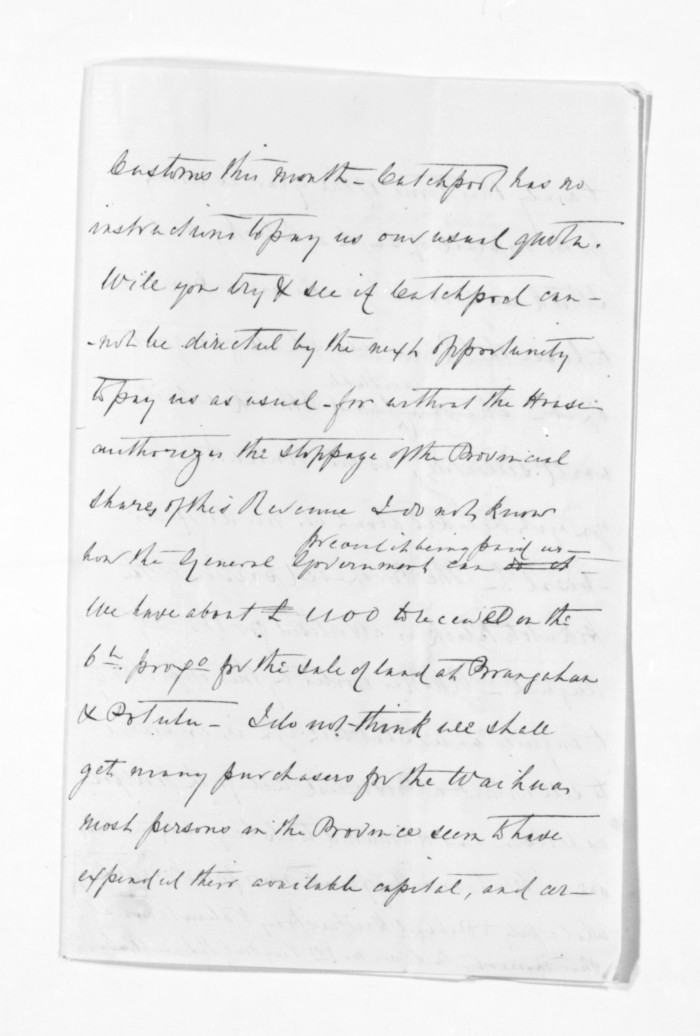 Customs this month - Catchpool has no
instructions to pay us our usual quota.
Will you try & see if Catchpool can-
-not be directed by the next opportunity
to pay us as usual - for without the House
authorizes the stoppage of the Provincial
shares of this Revenue I do not know
prevent it being paid us -
how the General Government can do it -
We have about £1100 to receive on the
6th. proxo for the sale of land at Porangahau
& Potutu - I do not think we shall
get many purchasers for the Waihua,
most persons in the Province seem to have
expended their available capital, and cer-